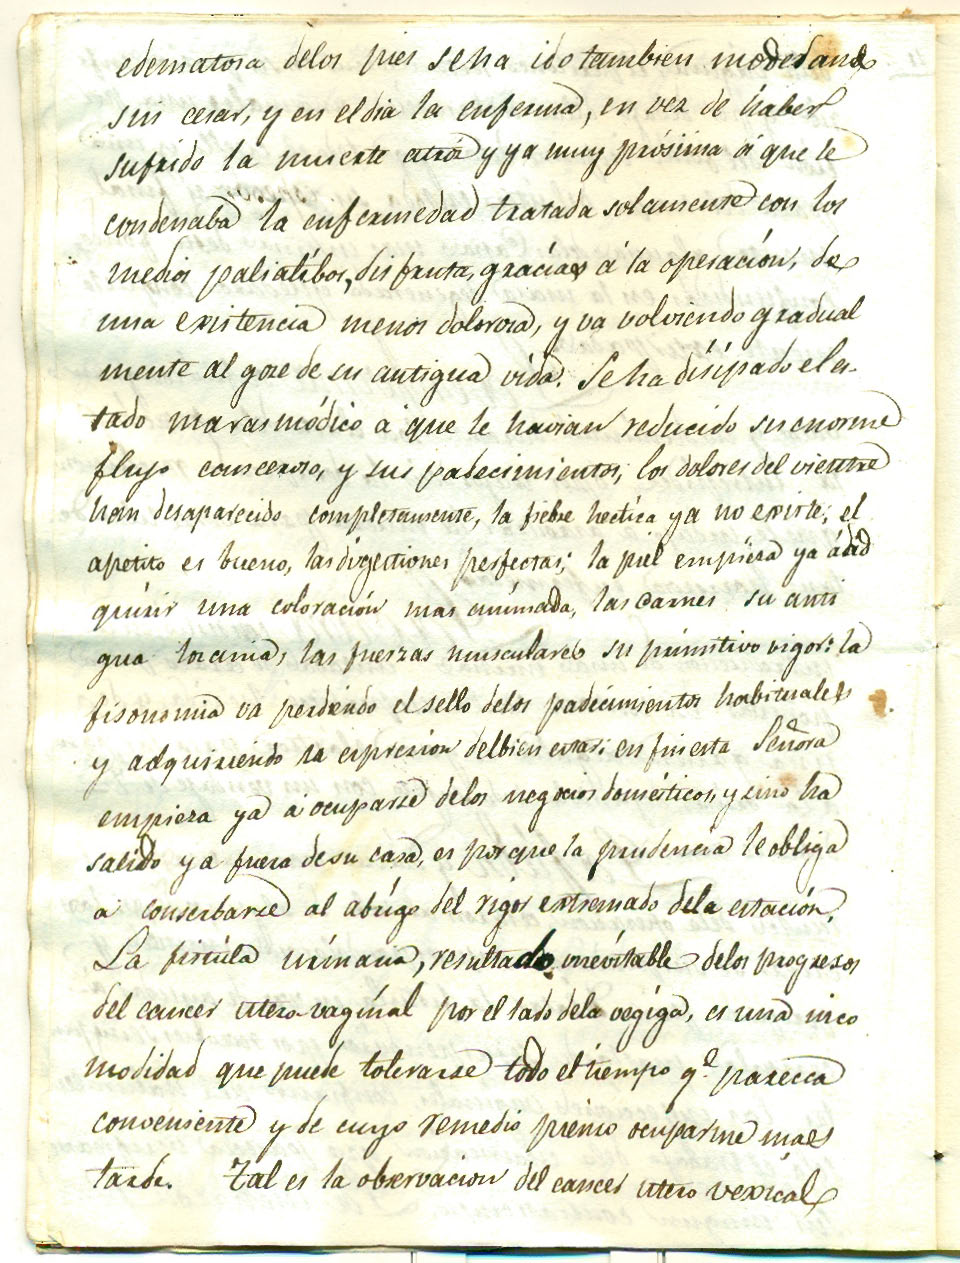 edematosa delos pies seha ido tambien moderando
sin cesar, y en el dia la enferma, en vez de haber
sufrido la muerte atróz y ya muy prósima á que le
condenaba la enfermedad tratada solamente con los
medios paliatibos, disfruta, grácias á la operación, de
una existencia menos dolorosa, y va volviendo gradual
mente al goze de su antigua vida. Seha disipado el es-
tado marasmódico á que le havian reducido su enorme
flujo canceroso, y sus padecimientos; los dolores del vientre
han desaparecido completamente, la fiebre hectica ya no existe; el
apetito es bueno, las digestiones perfectas; la piel empieza ya á ad
quirir una coloración mas animada, las carnes su anti
gua lozania, las fuerzas musculares su primitivo vigor: la
fisonomia va perdiendo el sello delos padecimientos habituales
y adquiriendo la exprezion delbien estar: en fin esta Señora
empieza ya á ocuparse delos negocios domésticos, y sino ha
salido ya fuera desu casa, es por que la prudencia le obliga
a conserbarse al abrigo del rigor extremado dela estación.
La fistula urinaria, resultado inévitable delos progresos
del cancer utero-vaginal por el lado dela vegiga, es una inco
modidad que puede tolerarse todo el tiempo q.e parezca
conveniente y de cuyo remedio pienso ocuparme mas
tarde. Tal es la observacion del cancer utero vexical